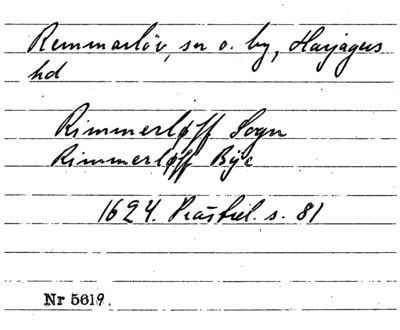 Remmarlöv, sn o. by, Harjagers
hd
Rimmerløff Sogn
Rimmerløff Bÿe
1624. s. 81
Nr 5619.